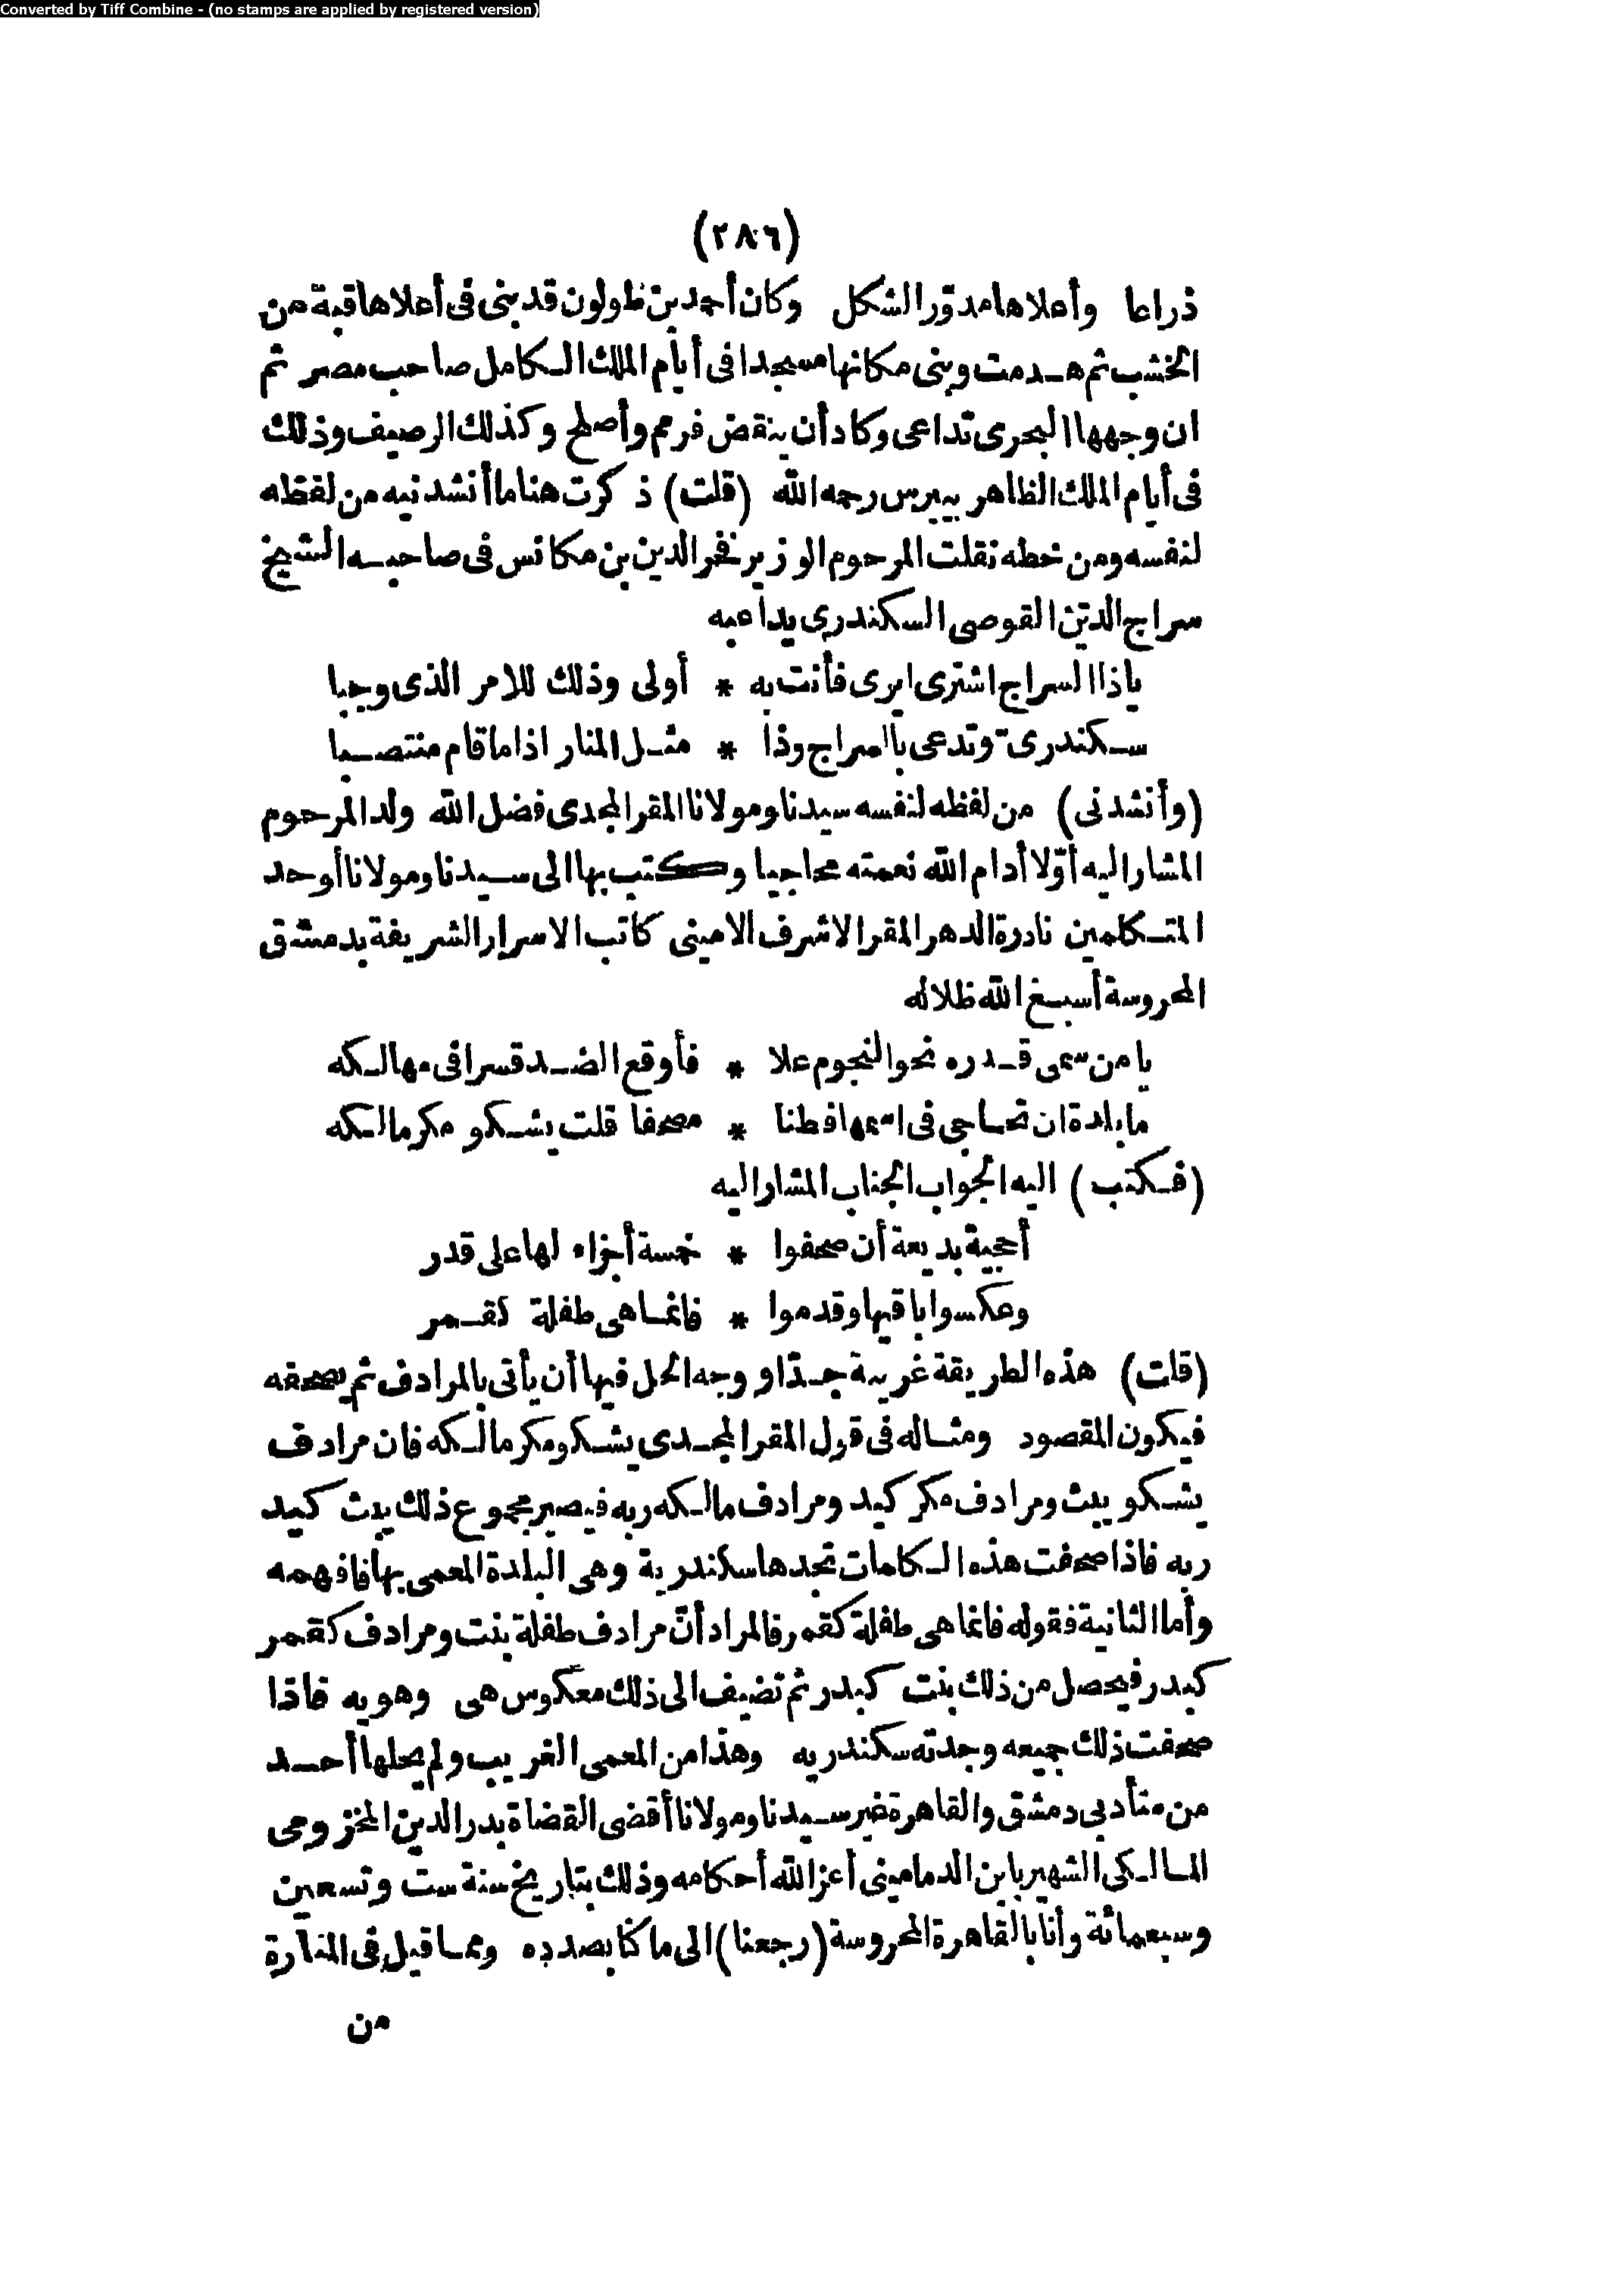 Converted by Tiff Combine - (no stamps are applied by registered version)
(٢٨٦)
ذراعا وأعلاها مدوّر الشكل وكان أحمد بن طولون قد بنى فى أعلاها قبة من
الخشب ثم هدمت وبنى مكانها مسجدا فى أيام الملك الكامل صاحب مصر ثم
ان وجهها البحرى تداعى وكاد أن ينقض فرمم وأصلح وكذلك الرصيف وذلك
فى أيام الملك الظاهر بيبرس رحمه الله (قلت) ذكرت هنا ما أنشدنيه من لفظه
لنفسه ومن خطه نقلت المرحوم الوزير فخر الدين بن مكانس فى صاحبه الشيخ
سراج الدين القوصى السكندرى يداعبه
ياذا السراج اشترى ايرى فأنت به * أولى وذلك للامر الذى وجبا
سكندرىّ وتدعى بالسراج وذا * مثل المنار اذا ما قام منتصبا
(وأنشدنى) من لفظه لنفسه سيدنا ومولانا المقر المجدى فضل الله ولد المرحوم
المشار اليه أوّلا أدام الله نعمته محاجيا وكتب بها الى سيدنا ومولانا أوحد
المتكلمين نادرة الدهر المقر الاشرف الامينى كاتب الاسرار الشريفة بدمشق
المحروسة أسبغ الله ظلاله
يا من سمى قدره نحو النجوم علا * فأوقع الضد قسرا فى مهالكه
ما بلدة ان تحاجى فى اسمها فطنا * مصحفا قلت يشكو مكر مالكه
(فكتب) اليه الجواب الجناب المشار اليه
أحجية بديعة أن صحفوا * خمسة أجزاء لها على قدر
وعكسوا باقيها وقدموا * فانما هى طفلة كقمر
(قلت) هذه الطريقة غريبة جدّا ووجه الحل فيها أن يأتى بالمرادف ثم يصحفه
فيكون المقصود ومثاله فى قول المقر المجدى يشكو مكر مالكه فان مرادف
يشكو يبث ومرادف مكر كيد ومرادف مالكه ربه فيصير مجموع ذلك يبث كيد
ربه فاذا صحفت هذه الكلمات تجدها سكندرية وهى البلدة المعمى بها فافهمه
وأما الثانية فقوله فانما هى طفلة كقمر فالمراد أنّ مرادف طفلة بنت ومرادف كقمر
كبدر فيحصل من ذلك بنت كبدر ثم تضيف الى ذلك معكوس هى وهو يه فاذا
صحفت ذلك جميعه وجدته سكندريه وهذا من المعمى الغريب ولم يحلها أحد
من متأدبى دمشق والقاهرة غير سيدنا ومولانا أقضى القضاة بدر الدين المخزومى
المالكى الشهير بابن الدمامينى أعز الله أحكامه وذلك بتاريخ سنة ست وتسعين
وسبعمائة وأنا بالقاهرة المحروسة (رجعنا) الى ما كنا بصدده ومما قيل فى المنارة
من